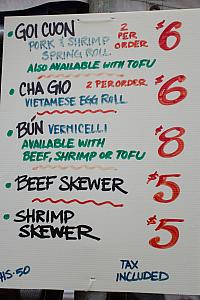 • GOI CUON
PORK & SHRIMP
SPRING ROLL
2 PER ORDER
$6
ALSO AVAILABLE WITH TOFU
• CHA GIO
2 PER ORDER
VIETAMESE EGG ROLL
$6
• BÚN VERMICELLI
AVAILABLE WITH
BEEF, SHRIMP OR TOFU
$8
• BEEF SKEWER
$5
• SHRIMP
SKEWER
$5
TAX
INCLUDED